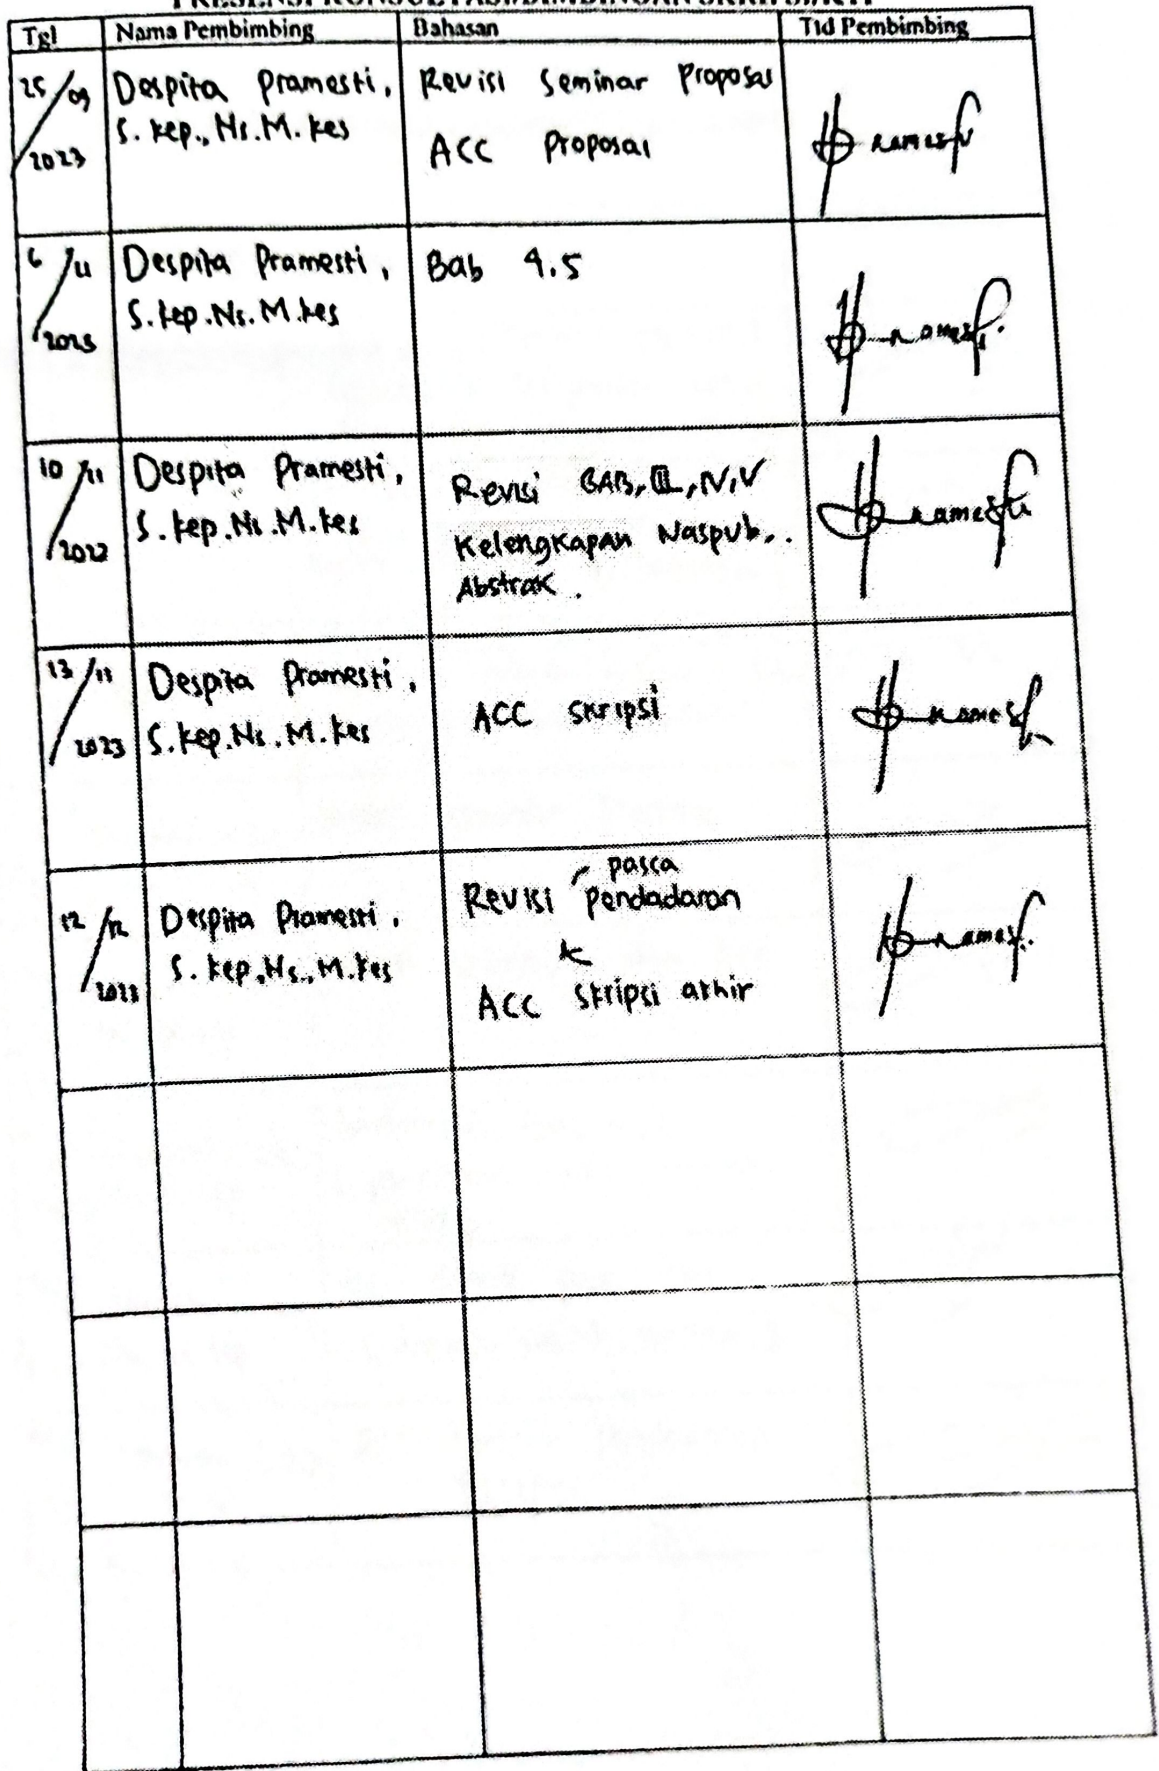 PRESENSI KONSULTASI/BIMBINGAN SKRIPSI/KTI
Tgl Nama Pembimbing Bahasan Ttd Pembimbing
25/09 2023
Despita Pramesti,
S.kep., Ns.M.kes
Revisi Seminar Proposal
ACC Proposal
6/11 2023
Despita Pramesti,
S.kep.Ns.M.kes
Bab 4.5
10/11 2023
Despita Pramesti,
S.kep.Ns.M.kes
Revisi BAB, III, IV, V
Kelengkapan Naspub..
Abstrak.
13/11 2023
Despita Pramesti,
S.kep.Ns.M.kes
ACC skripsi
12/12 2023
Despita Pramesti,
S.kep.Ns., M.kes
Revisi pasca pendadaran
&
ACC skripsi akhir